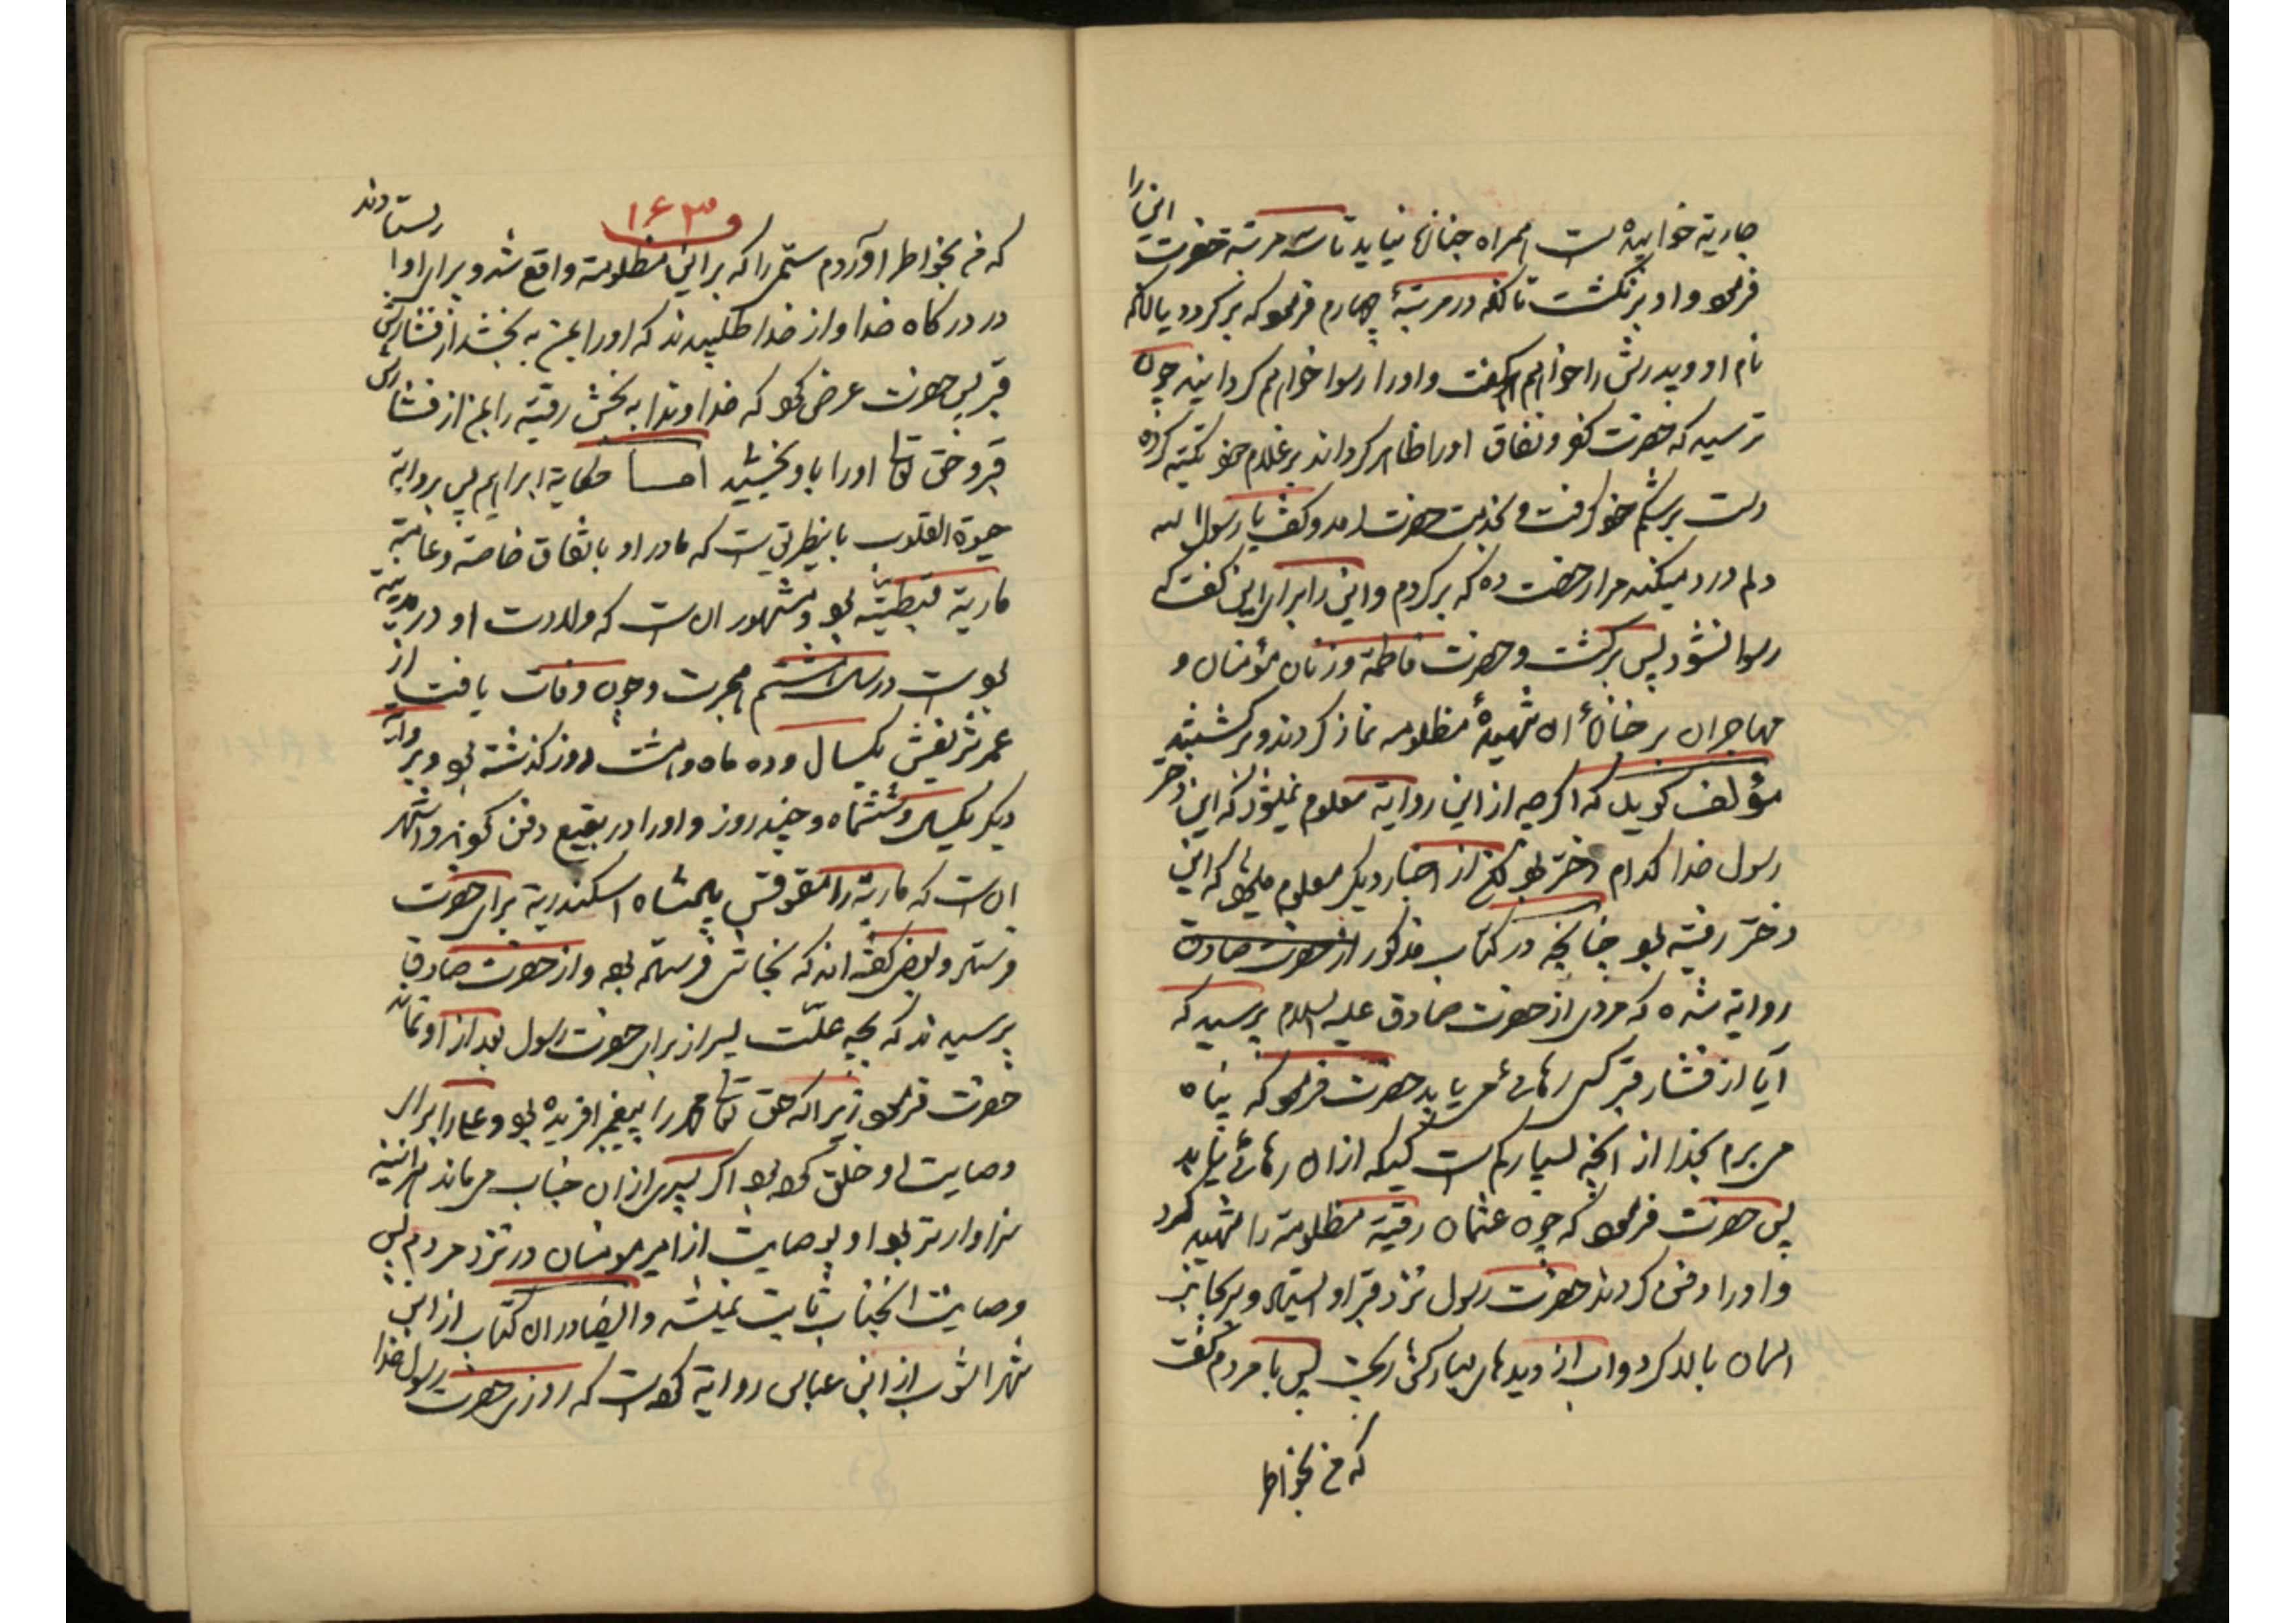 این را
جاریة خوابیده است همراه جنازه نیاید تا سه مرتبة حضرت
فرمود و او برنگشت تا آنکه در مرتبهٔ چهارم فرمود که برگردد یا آنکه
نام او و پدرش را خواهم گفت و اورا رسوا خواهم گردانید چون
ترسید که حضرت کفر و نفاق اورا ظاهر گرداند بر غلام خود تکیه کرده
دست بر شکم خود گرفت و بخدمت حضرت امد و گفت یا رسول الله
دلم درد میکند مرا رخصت ده که برگردم و این را برای این گفت که
رسوا نشود پس برگشت و حضرت فاطمة و زنان مؤمنان و
مهاجران بر جنازهٔ ان شهیدهٔ مظلومه نماز کردند و برگشتند
مؤلف گوید که اگرچه از این روایة معلوم نمیشود که این دختر
رسول خدا کدام دختر بود لکن از اخبار دیگر معلوم میشود که این
دختر رقیة بود چنانچه در کتاب مذکور از حضرت صادق
روایة شده که مردی از حضرت صادق علیه السلام پرسید که
آیا از فشار قبر کسی رهائی می یابد حضرت فرمود که پناه
می برم بخدا از آنچه بسیار کم است کسیکه از ان رهائی یابد
پس حضرت فرمود که چون عثمان رقیة مظلومة را شهید کرد
و اورا دفن کردند حضرت رسول نزد قبر او ایستاد و سر بجانب
اسمان بالا کرد و اب از دیدهای مبارکش ریخت پس با مردم گفت
که من بخواطر
۱۶۳
که من بخواطر اوردم ستمی را که بر این مظلومة واقع شد و برای او ایستادند
در درگاه خدا و از خدا طلبیدند که اورا بمن به بخشد از فشارش
قبر پس حضرت عرض کرد که خداوندا به بخش رقیة را بمن از فشارش
قبر و حق تعالی اورا باو بخشید اما حکایة ابراهیم پس بروایة
حیوة القلوب باینطریق است که مادر او باتفاق خاصة و عامة
ماریة قبطیة بود و مشهور ان است که ولادت او در مدینة
بود است در سال هشتم هجرت و چون وفات یافت از
عمر شریفش یکسال و ده ماه و هشت روز گذشته بود و بروایة
دیگر یکسال و ششماه و چند روز و اورا در بقیع دفن کردند و اشهر
ان است که ماریة را مقوقس پادشاه اسکندریة برای حضرت
فرستاد و بعضی گفته اند که نجاشی فرستاده بود و از حضرت صادق
پرسیدند که بچه علّت پسر از برای حضرت رسول بعد از او نماند
حضرت فرمود زیرا که حق تعالی محمد را پیغمبر افریده بود و علی را برای
وصایت او خلق کرده بود اگر پسری از ان جناب می ماند هر اینه
سزاوارتر بود او بوصایت از امیر مومنان در نزد مردم پس
وصایت انجناب ثابت نمیشد و ایضا در ان کتاب از ابن
شهر اشوب از ابن عباس روایة کرده است که روزی حضرت رسول خدا